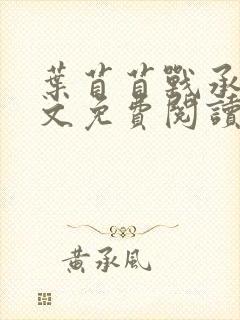 葉苜苜戰承
文免費閱讀
黃承風